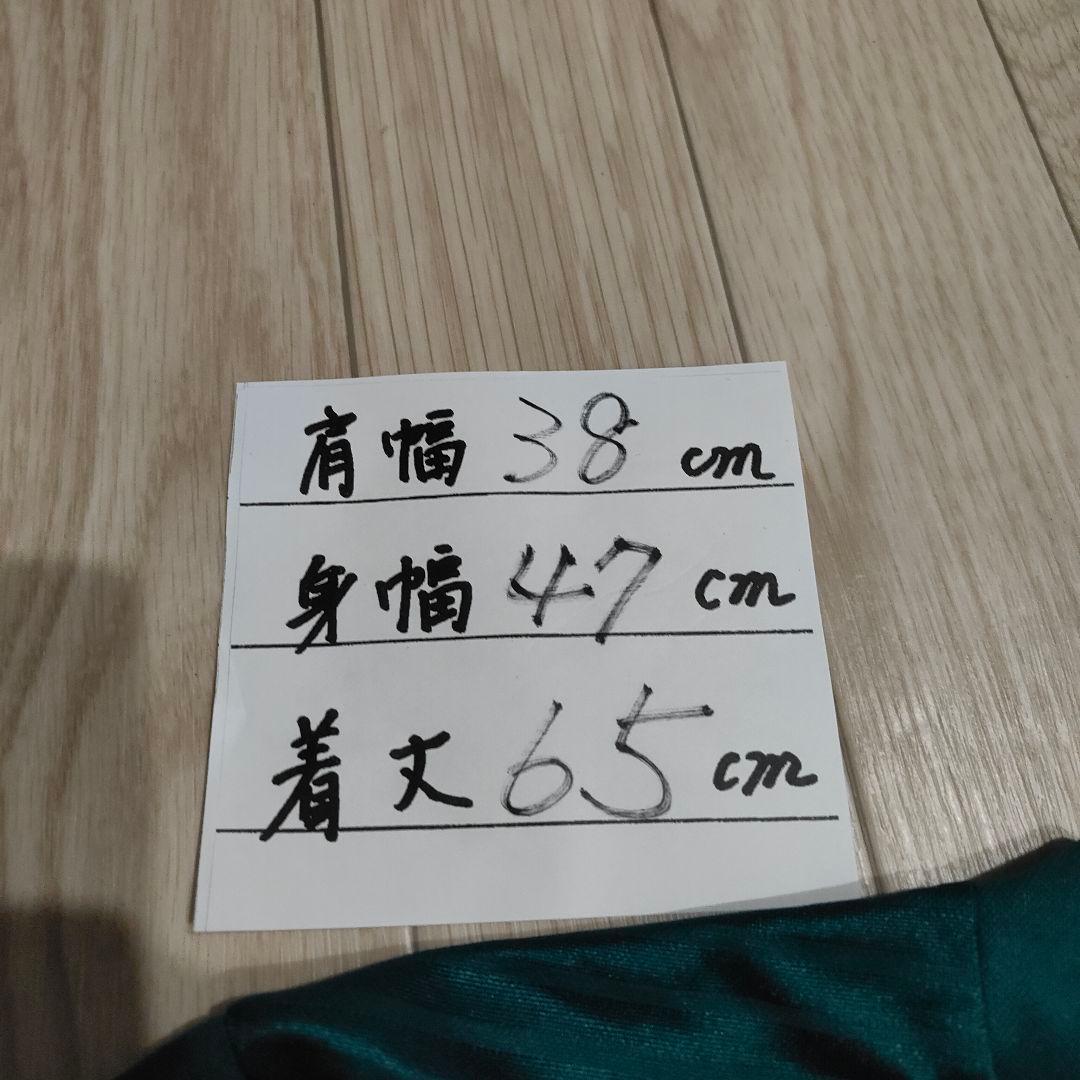 肩幅 38 cm
身幅 47 cm
着丈 65 cm